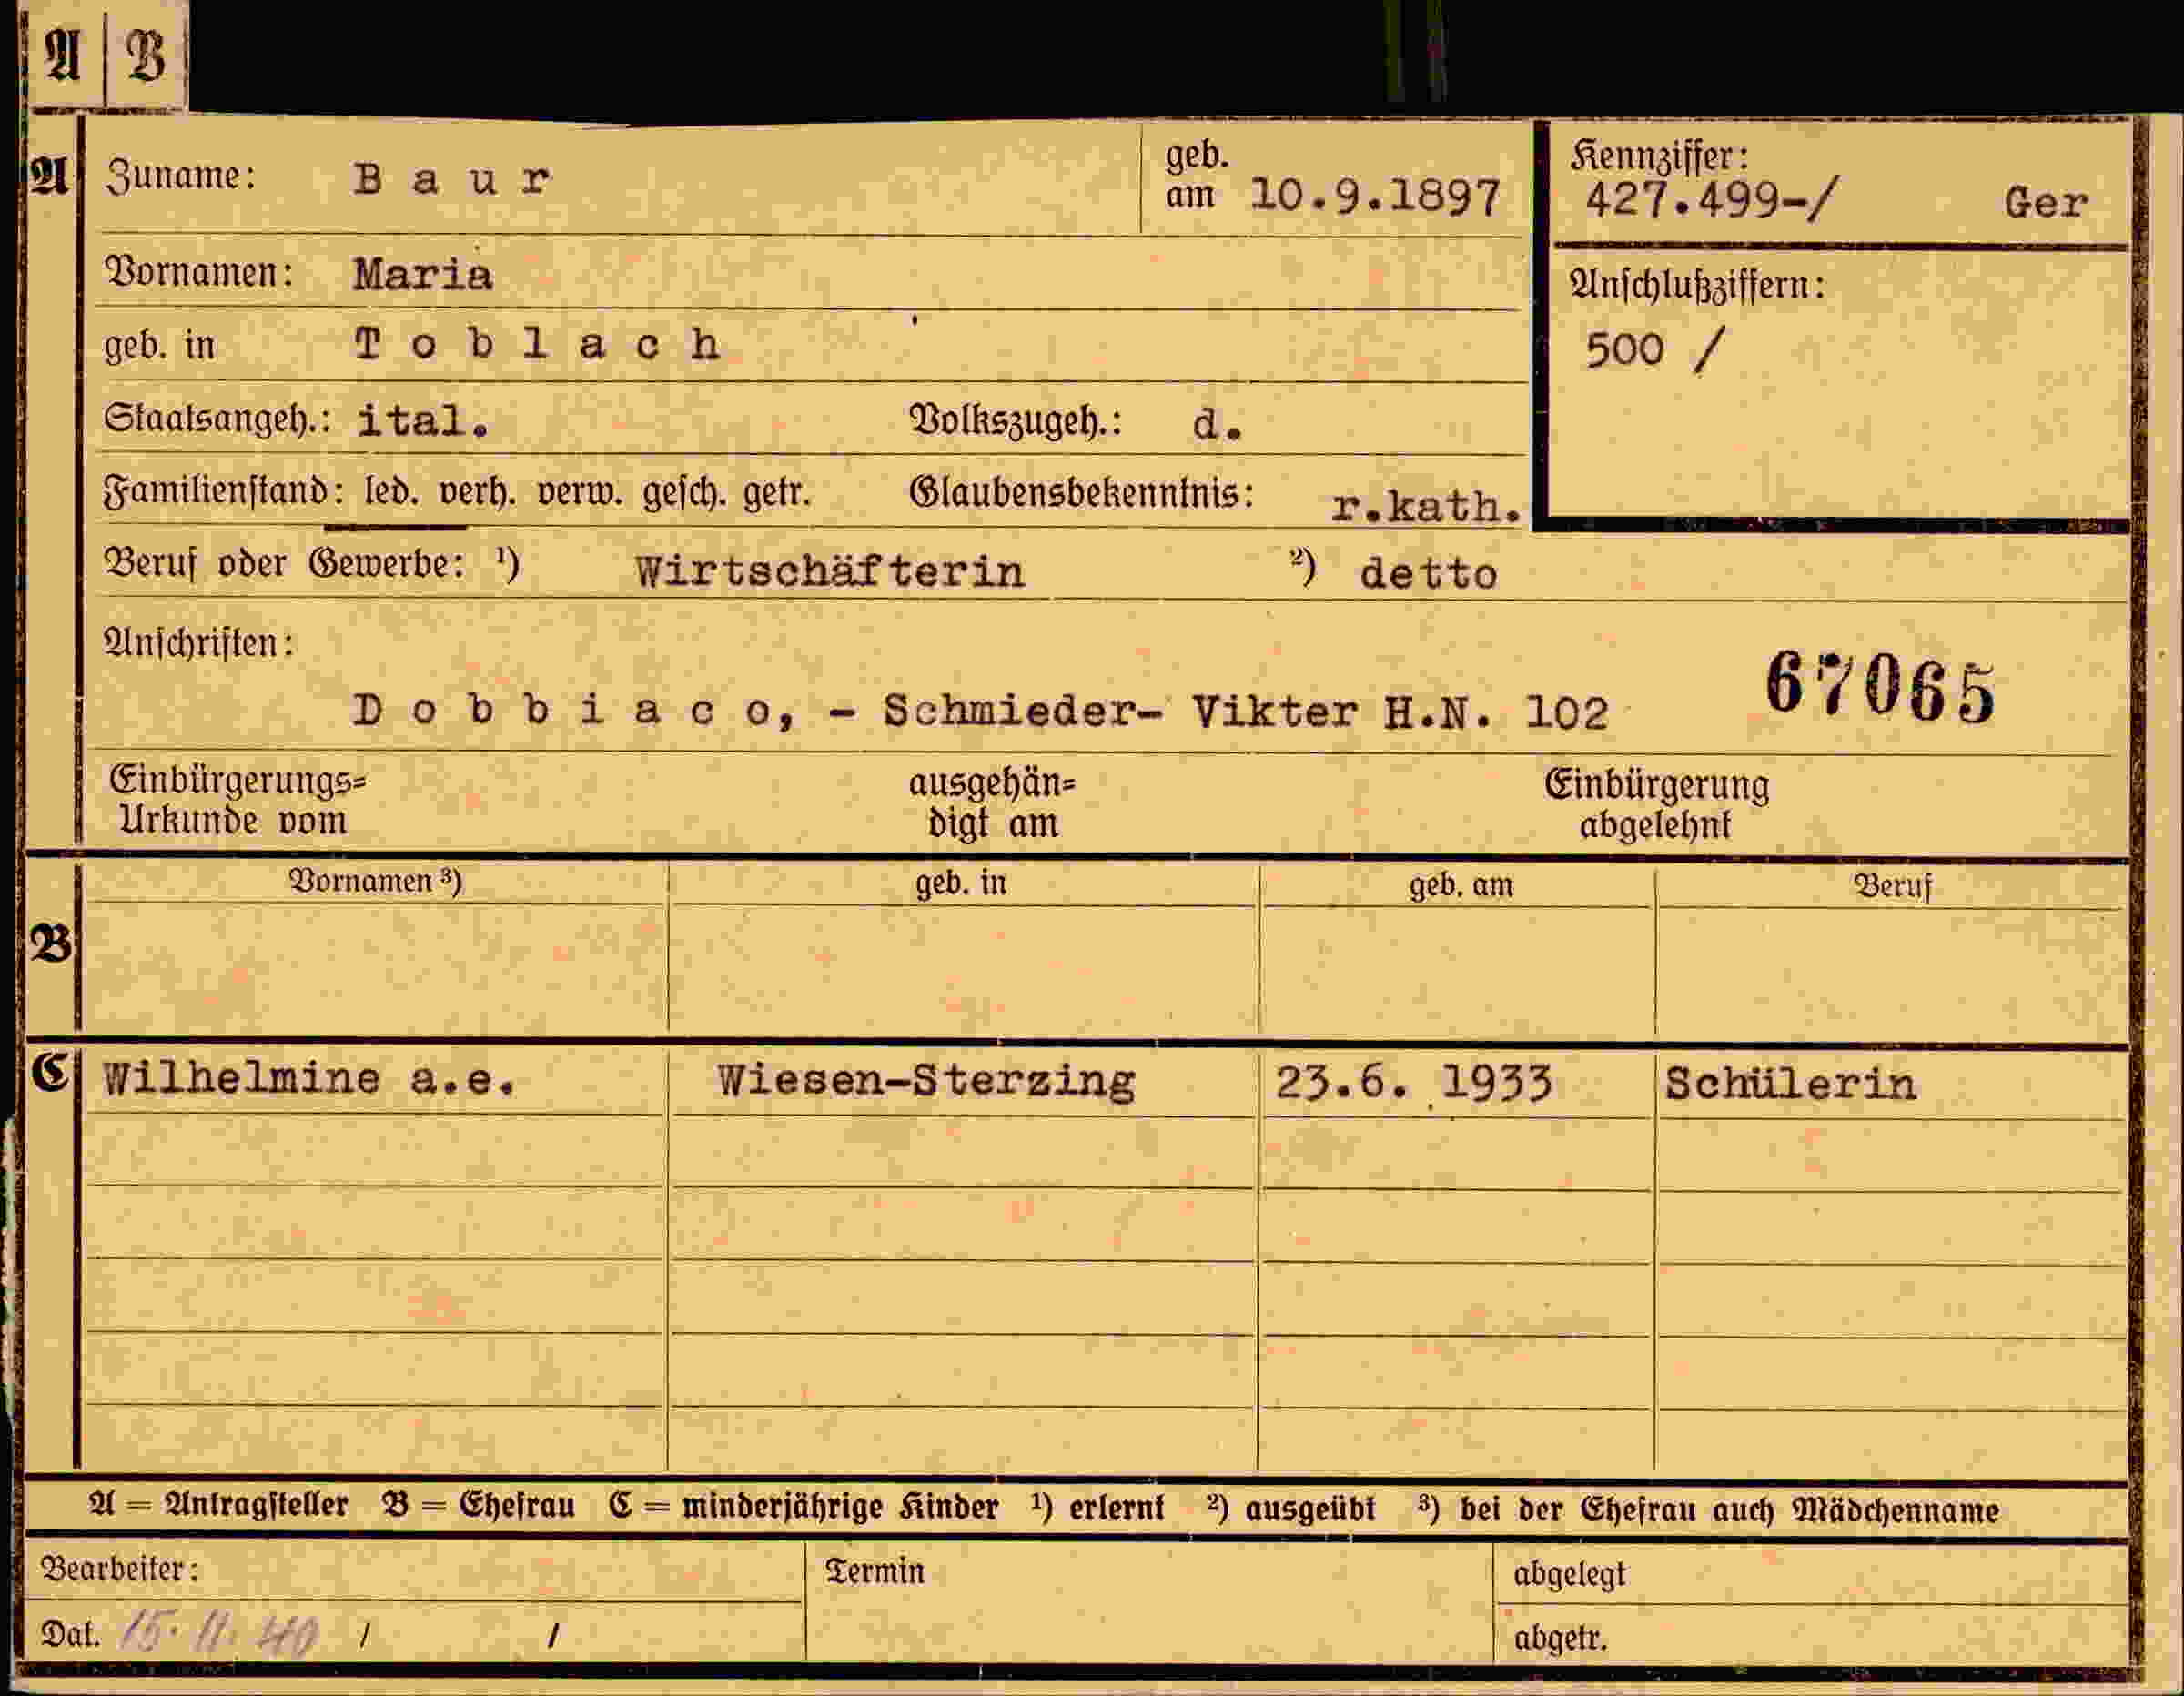 A | B
A Zuname: Baur geb. am 10.9.1897 Kennziffer: 427.499-/ Ger
Vornamen: Maria Anschlußziffern:
geb. in Toblach 500 /
Staatsangeh.: ital. Volkszugeh.: d.
Familienstand: led. verh. verw. gesch. getr. Glaubensbekenntnis: r.kath.
Beruf oder Gewerbe: ¹) Wirtschäfterin ²) detto
Anschriften:
Dobbiaco, - Schmieder- Vikter H.N. 102 67065
Einbürgerungs= ausgehän= Einbürgerung
Urkunde vom digt am abgelehnt
Vornamen ³) geb. in geb. am Beruf
B
C Wilhelmine a.e. Wiesen-Sterzing 23.6. 1933 Schülerin
A = Antragsteller B = Ehefrau C = minderjährige Kinder ¹) erlernt ²) ausgeübt ³) bei der Ehefrau auch Mädchenname
Bearbeiter: Termin abgelegt
Dat. 15. 11. 40 / / abgetr.